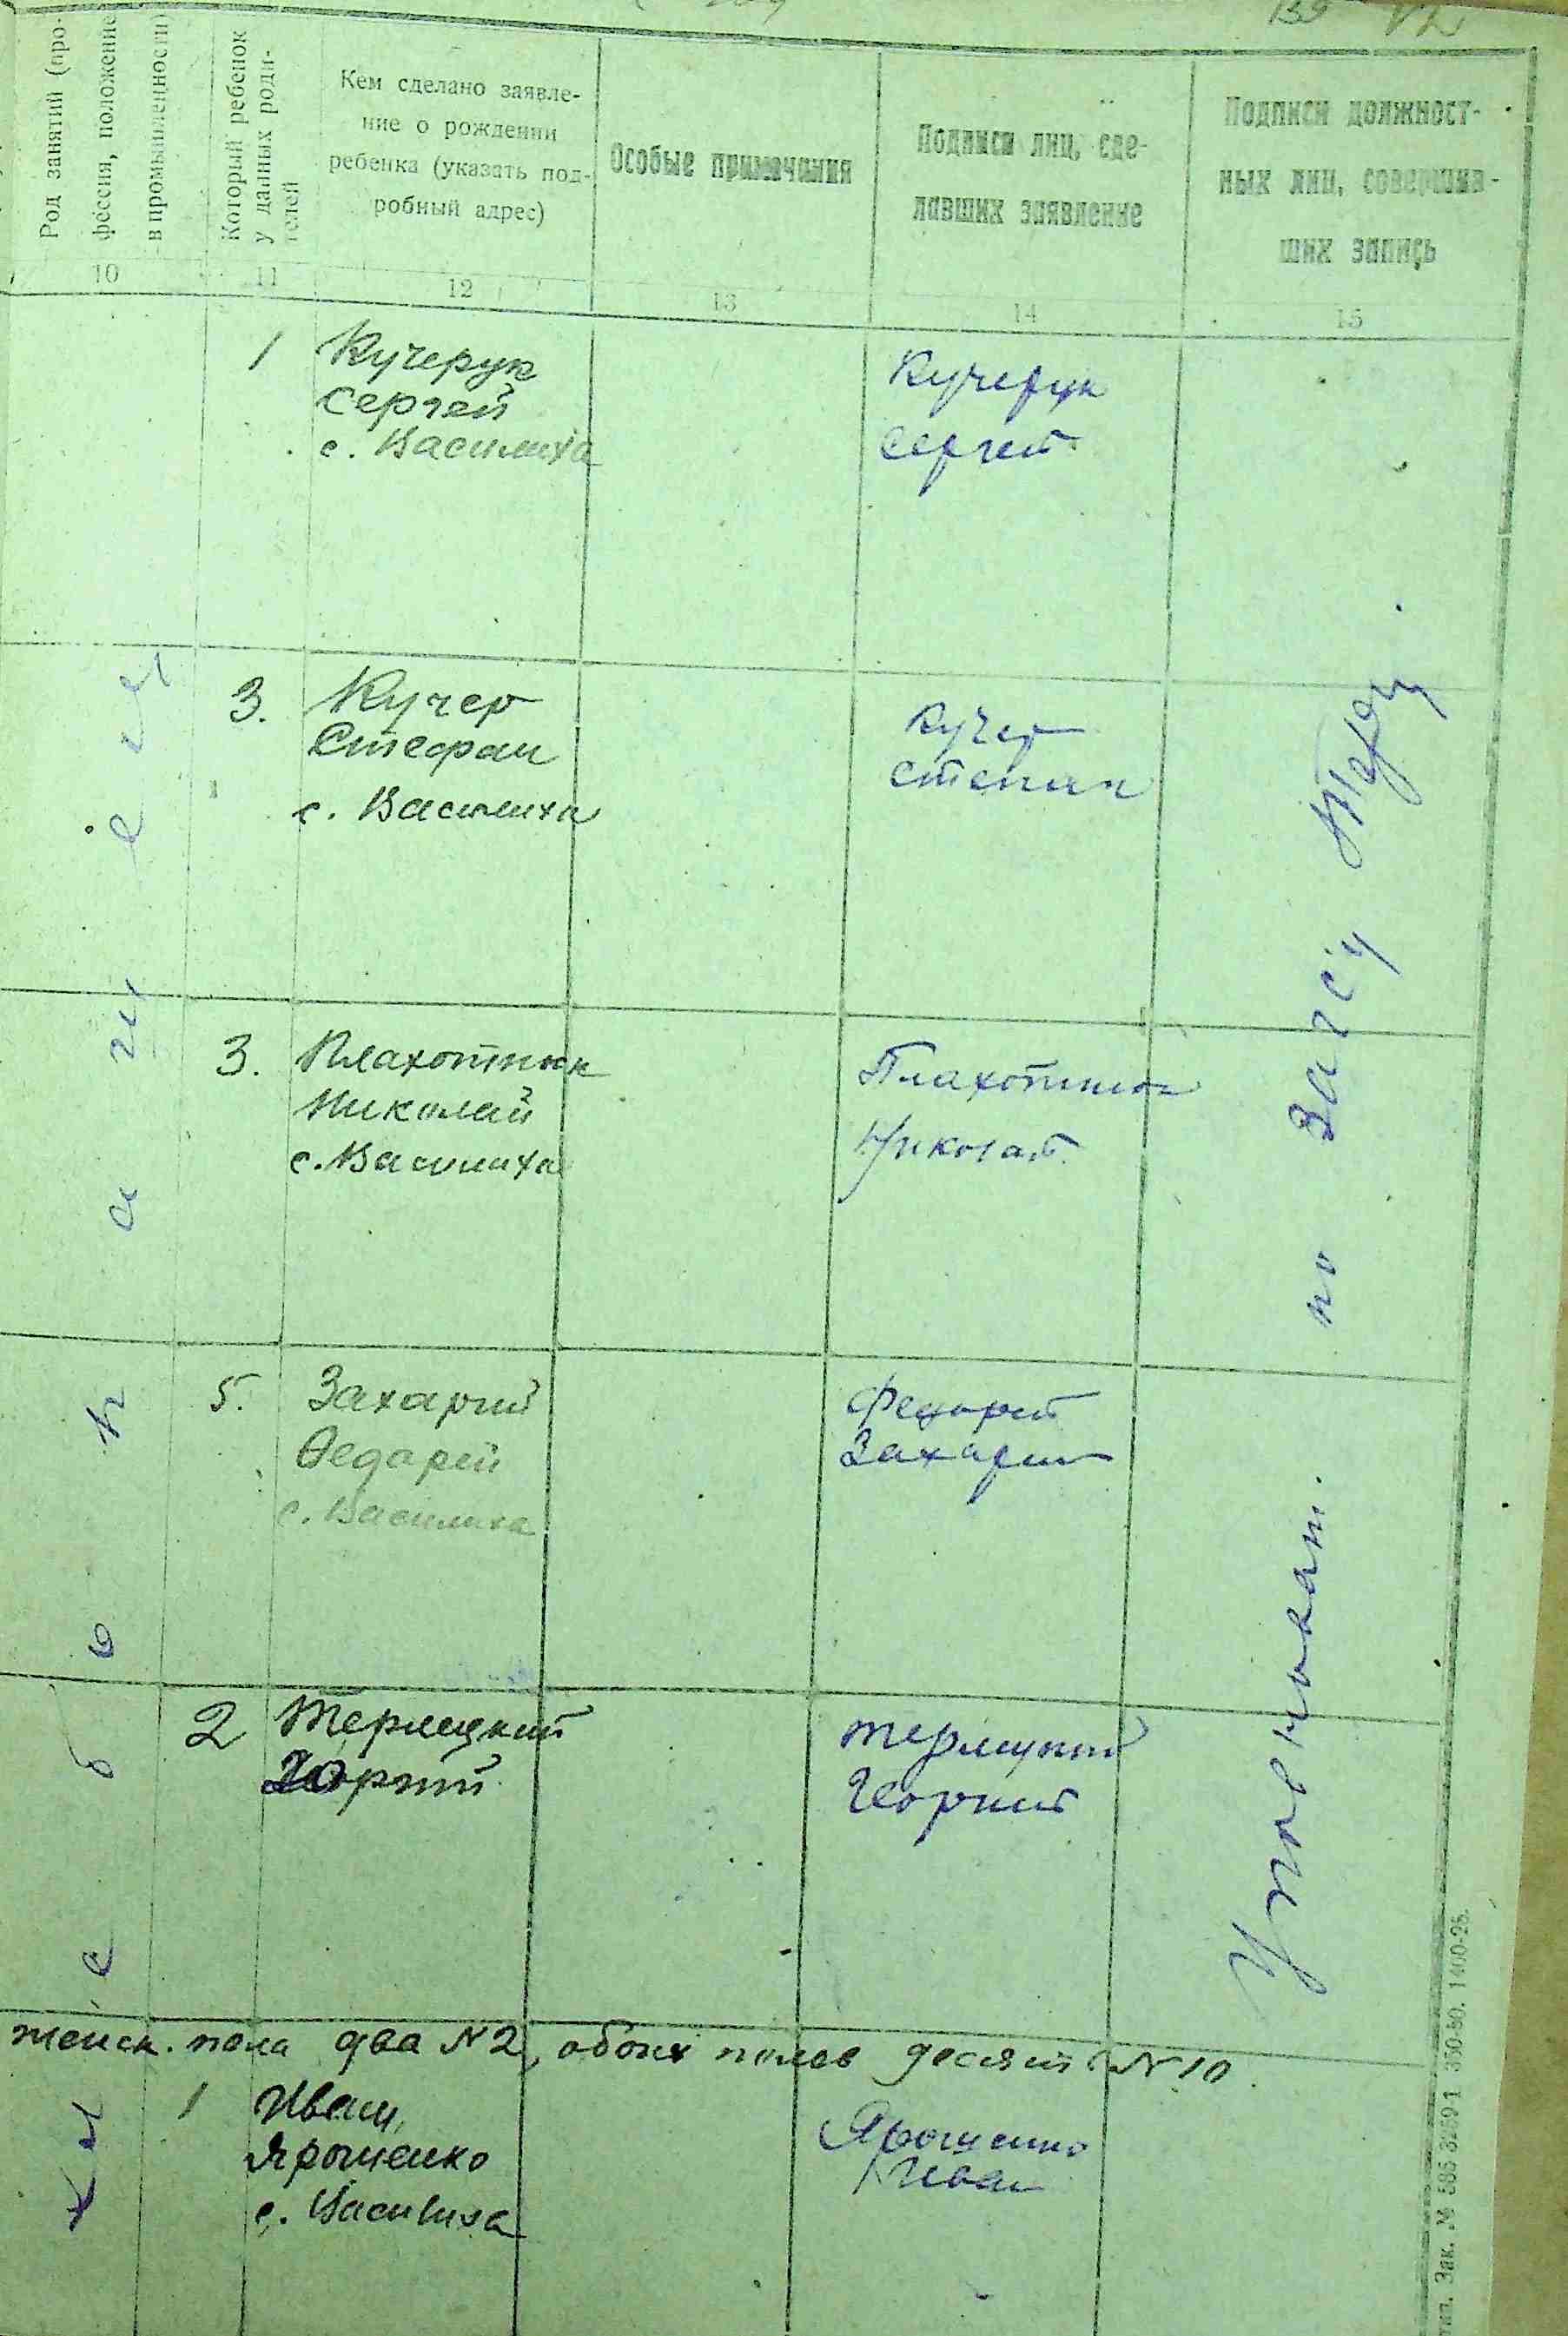 139
Род занятий (про-
фессия, положение
в промышленности)
Который ребенок
у данных роди-
телей
Кем сделано заявле-
ние о рождении
ребенка (указать под-
робный адрес)
Особые примечания
Подписи лиц, сде-
лавших заявление
Подписи должност-
ных лиц, совершив-
ших запись
10 11 12 13 14 15
1 Кучерук
Сергей
с. Василиха
Кучерук
Сергей
3. Кучер
Стефан
с. Василиха
Кучер
Степан
3. Плахотнюк
Николай
с. Василиха
Плахотнюк
Николай
5. Захарий
Федорей
с. Василиха
Федорей
Захарий
2 Терлецкий
Георгий
Терлецкий
Георгий
Уполномоч. по Загсу
женск. пола два N 2, обоих полов десят N 10.
1 Иван
Ярошенко
с. Василиха
Ярошенко
Иван
Зак. № 585 82591 350-80. 1400-25.